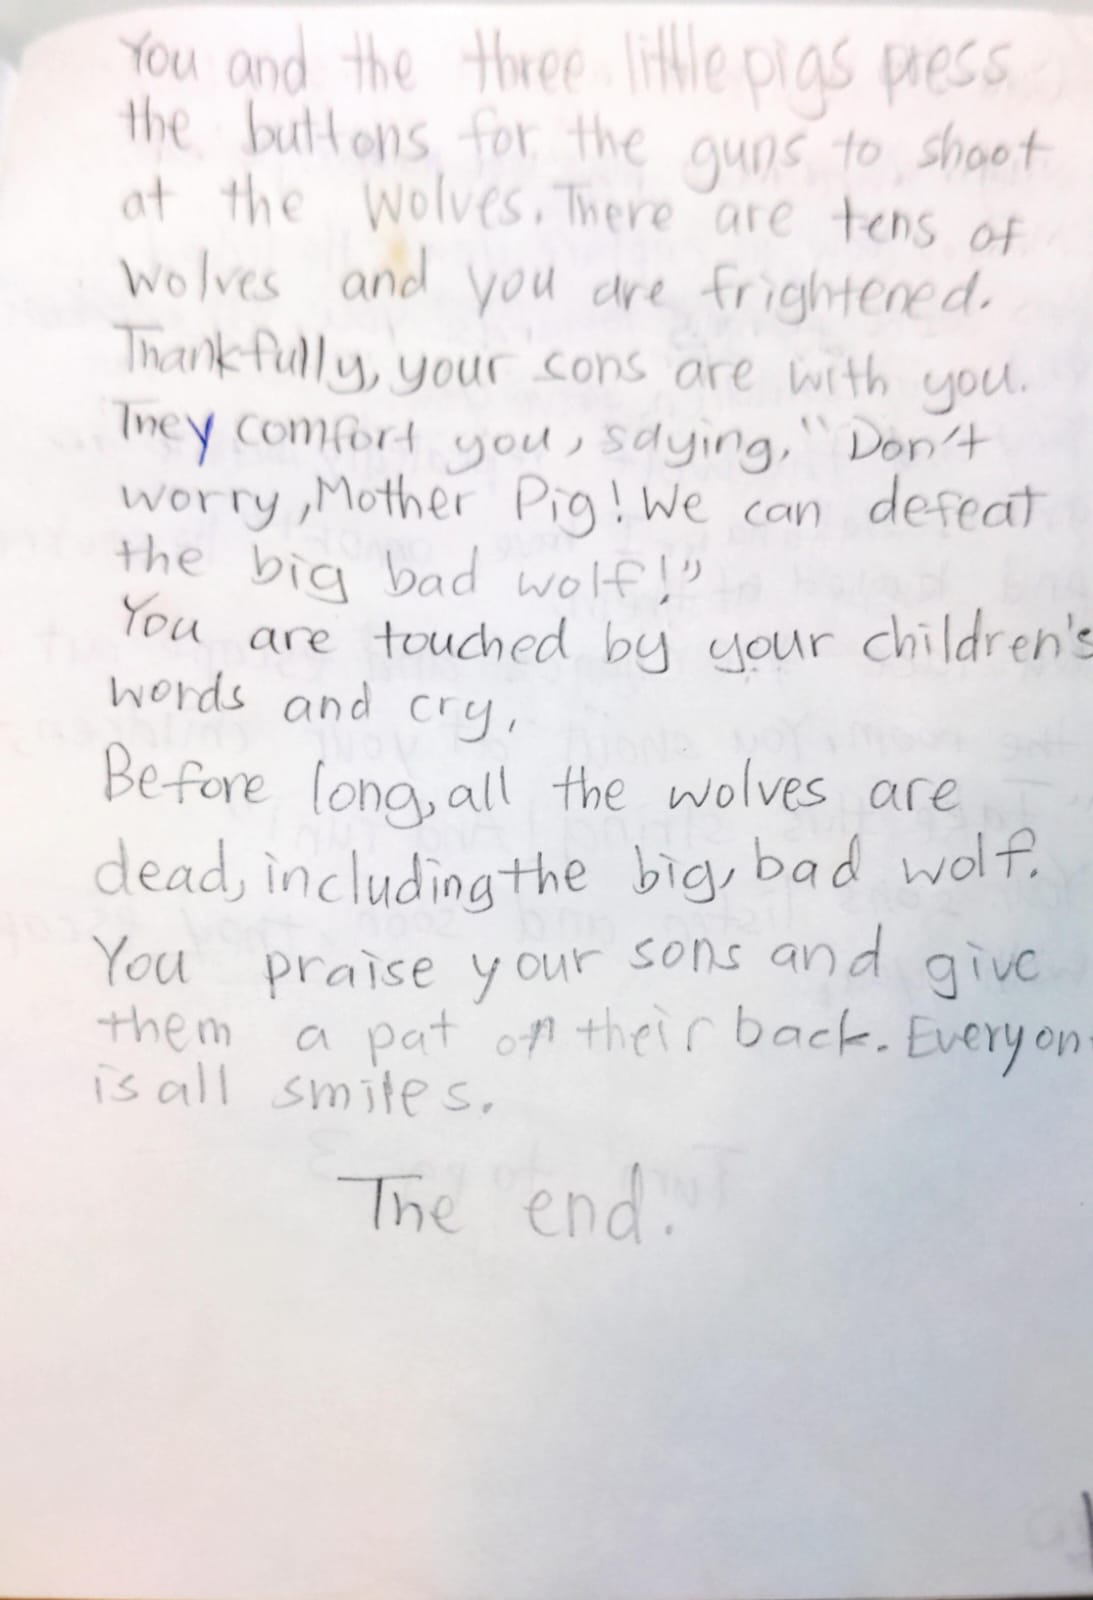 You and the three little pigs press
the buttons for the guns to shoot
at the wolves. There are tens of
wolves and you are frightened.
Thankfully, your sons are with you.
They comfort you, saying, "Don't
worry, Mother Pig! We can defeat
the big bad wolf!"
You are touched by your children's
words and cry.
Before long, all the wolves are
dead, including the big, bad wolf.
You praise your sons and give
them a pat on their back. Everyon
is all smiles.
The end.